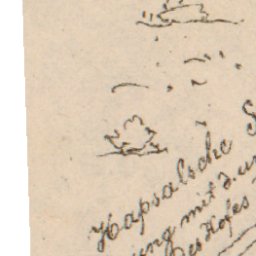 Hapsalsche S
ung mit d. un
des Hofes